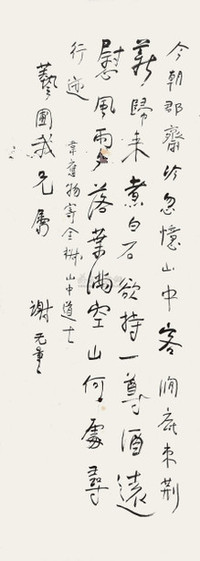 今朝郡齋冷忽憶山中客澗底束荆
薪歸来煮白石欲持一尊酒遠
慰風雨夕落葉滿空山何處尋
行迹
韋應物寄全椒山中道士
藝圃我兄屬
謝无量